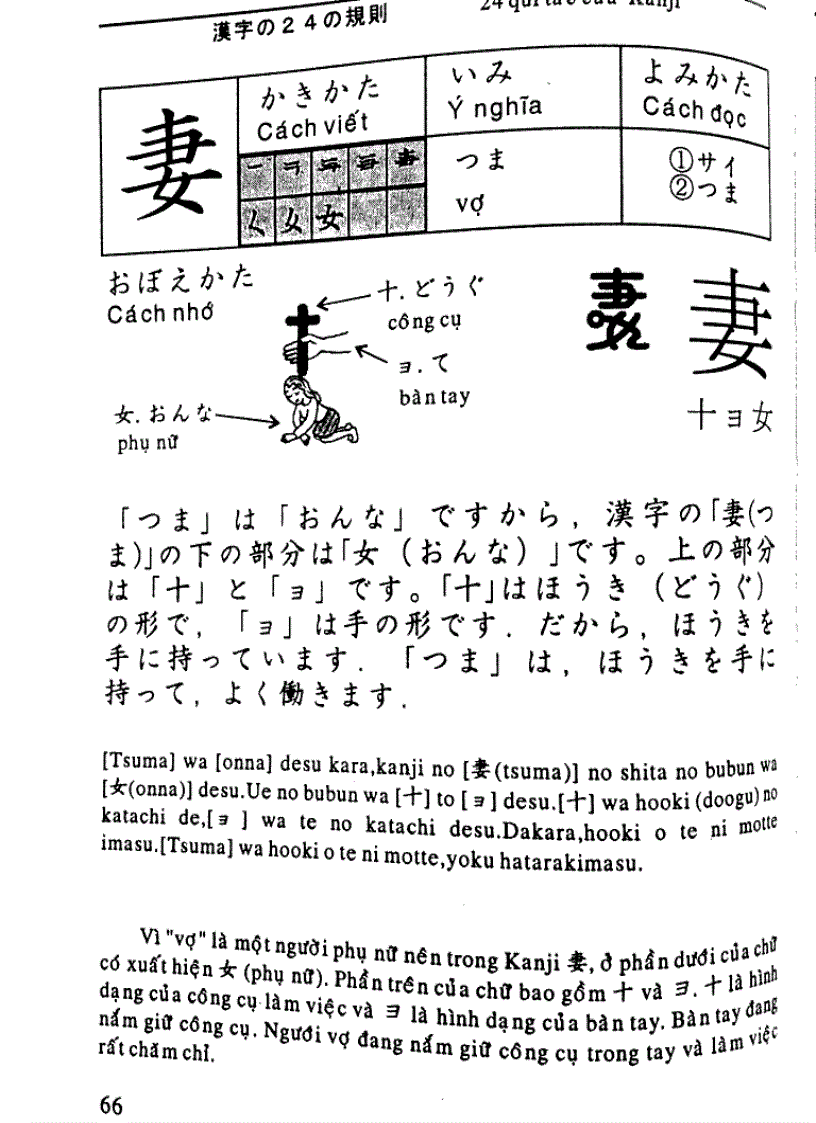 漢字の２４の規則
24 qui tắc của "Kanji"
妻
かきかた
Cách viết
いみ
Ý nghĩa
よみかた
Cách đọc
つま
vợ
①サイ
②つま
おぼえかた
Cách nhớ
十.どうぐ
công cụ
ヨ.て
bàn tay
女.おんな
phụ nữ
妻
十ヨ女
「つま」は「おんな」ですから, 漢字の「妻(つ
ま)」の下の部分は「女（おんな）」です。上の部分
は「十」と「ョ」です。「十」はほうき（どうぐ）
の形で, 「ョ」は手の形です. だから, ほうきを
手に持っています. 「つま」は, ほうきを手に
持って, よく働きます.
[Tsuma] wa [onna] desu kara,kanji no [妻(tsuma)] no shita no bubun wa
[女(onna)] desu.Ue no bubun wa [十] to [ヨ] desu.[十] wa hooki (doogu) no
katachi de,[ヨ ] wa te no katachi desu.Dakara,hooki o te ni motte
imasu.[Tsuma] wa hooki o te ni motte,yoku hatarakimasu.
Vì "vợ" là một người phụ nữ nên trong Kanji 妻, ở phần dưới của chữ
có xuất hiện 女 (phụ nữ). Phần trên của chữ bao gồm 十 và ヨ. 十 là hình
dạng của công cụ làm việc và ヨ là hình dạng của bàn tay. Bàn tay đang
nắm giữ công cụ. Người vợ đang nắm giữ công cụ trong tay và làm việc
rất chăm chỉ.
66